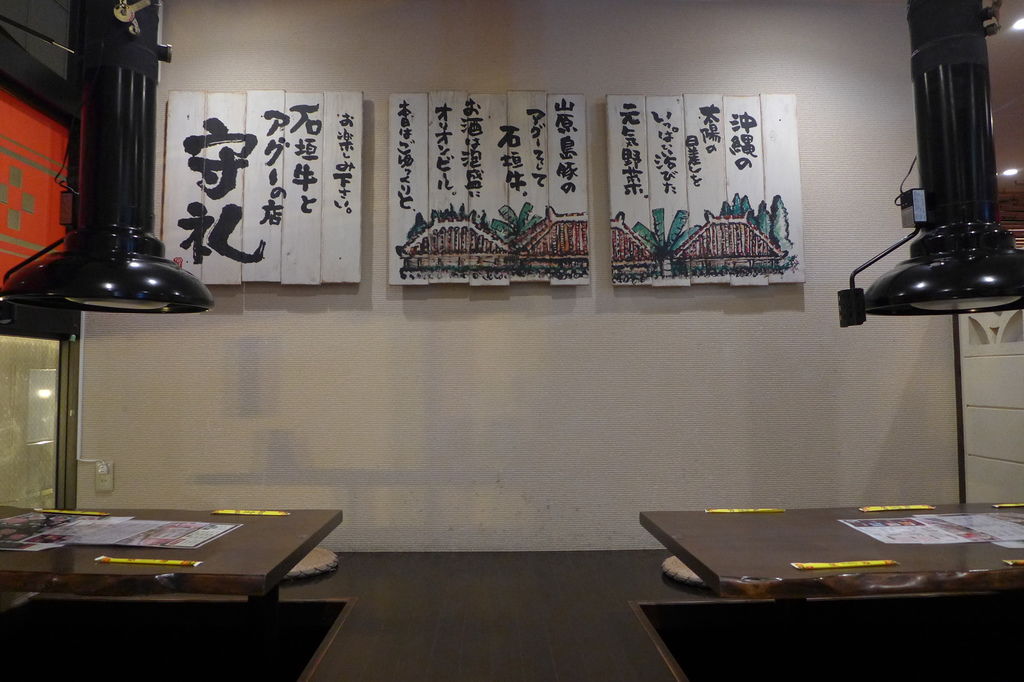 沖縄の
太陽の
日差しを
いっぱい浴びた
元気野菜。
山原島豚の
アグーそして
石垣牛。
お酒は泡盛に
オリオンビール。
本日はごゆるりと
お楽しみ下さい。
石垣牛と
アグーの店
守礼